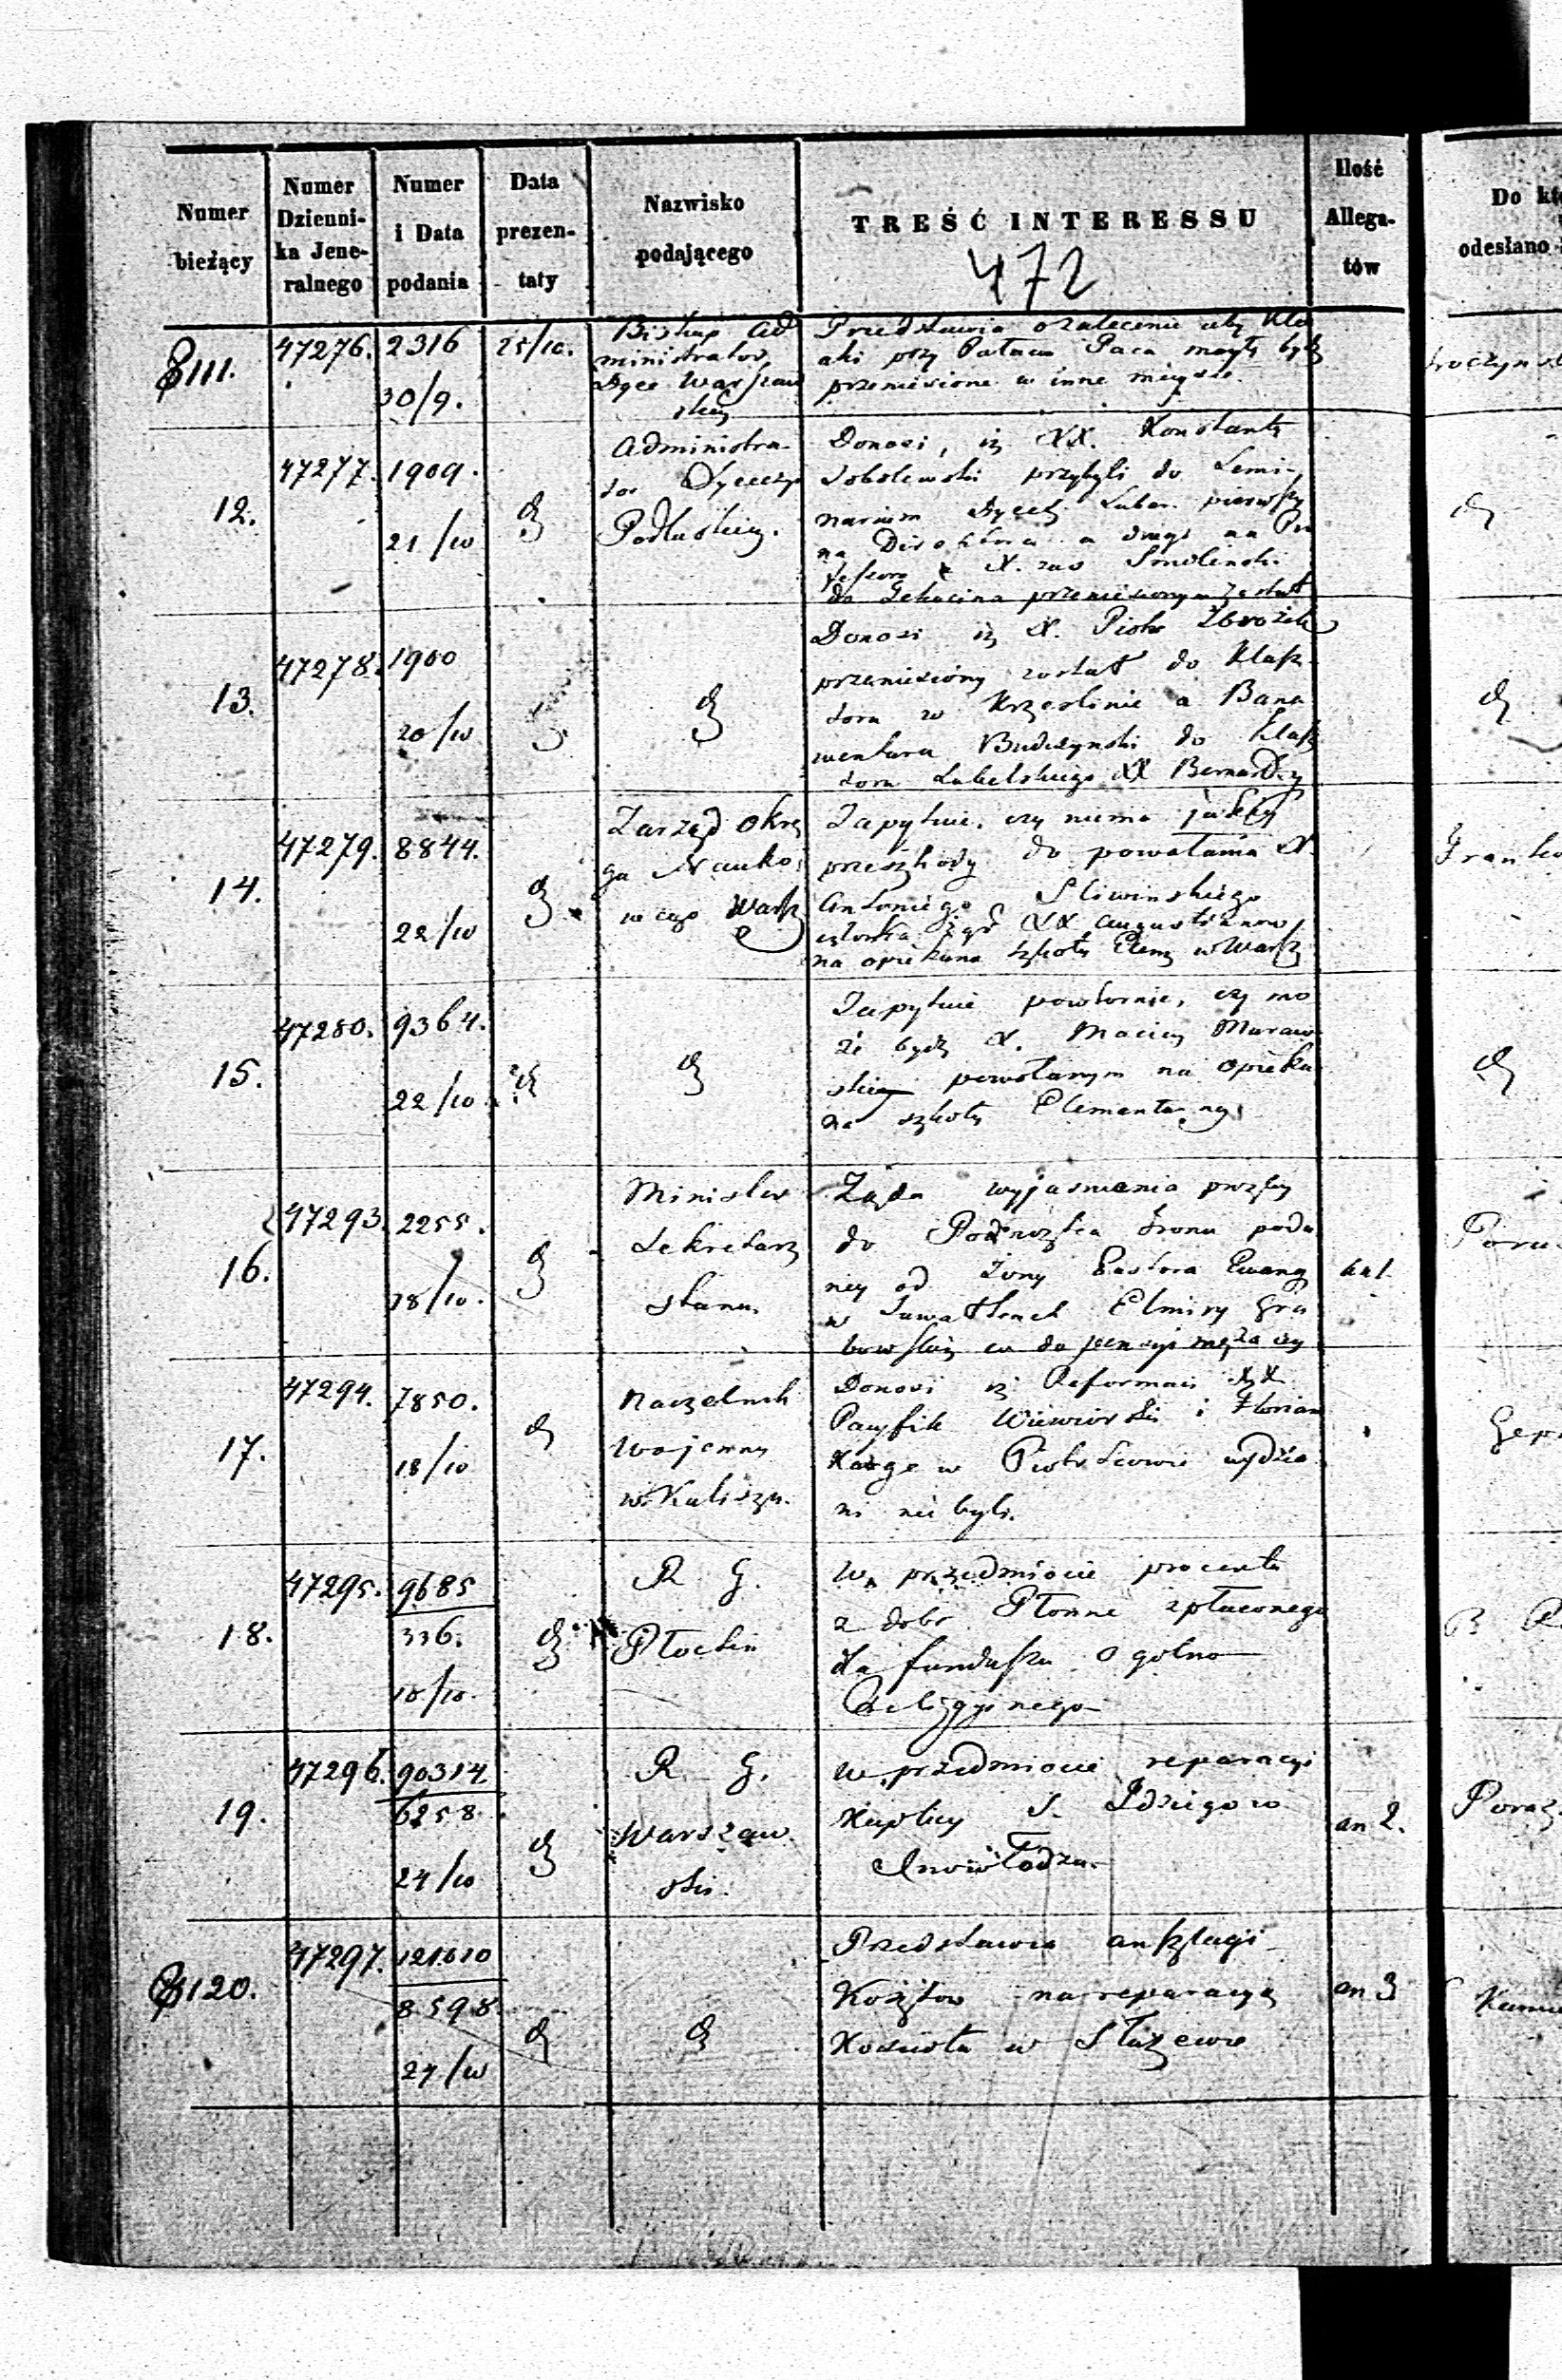 Numer bieżący
Numer Dzienni-
ka Jene-
ralnego
Numer
i Data
podania
Data
prezen-
taty
Nazwisko
podającego
TREŚĆ INTERESSU
472
Ilość
Allega-
tów
Do
odesłano
111.
47276.
2316
30/9.
25/10.
Biskup Ad
ministrator
Dyec Warszaw
skiej
Przedstawia o zalecenie aby
aki przy Pałacu Paca mogły być
przeniesione w inne miejsce.
12.
47277.
1909.
21/10
Administra-
tor Dyecezyi
Podlaskiej.
Donosi, iż XX. Konstanty
Sobolewski przybyli do Semi-
narium Dyecez Luber. pierwszy
na Direktora a drugi na Pro
fessora X. zas Smolinski
do przeniesionym został
13.
47278.
1900
20/10
Donosi iż X. Piotr Zbrożek
przeniesiony został do Klasz
tora w Krzeslinie a Bana
wentura Budzynski do Klasz
tora Lubelskiego XX Bernardy
14.
47279.
8844.
22/10
Zarząd okrę
gu Nauko
wego Warsz
Zapytuie, czy niema jakiey
przeszkody do powołania X.
Antoniego Sliwinskiego
członka Zgr XX Augustianow
na opiekuna szkoły Elem w Warsz
15.
47280.
9364.
22/10
Zapytuie powtornie, czy mo
że bydź X. Maciey Muraw
skiey powołanym na opieku
na szkoły Elementarnej
16.
47293.
2255.
18/10.
Minister
Sekretarz
Stanu.
Żąda wyjasnienia prozby
do Podnozka tronu poda
ney od żony Pastora Ewang
w Suwałkach Elmiry Gra
bowskiej co do pensyi męża czy
17.
47294.
7850.
18/10
Naczelnik
Wojenny
w Kaliszu.
Donosi iż Reformaci XX
Pacyfik Wiewiorski i Florian
Karge w Piotrkowie wydzia
ni nie byli.
Gep
18.
47295.
9685
336.
10/10.
R G.
Płocki
W przedmiocie procentu
z dobr Płonne zpłaconego
dla funduszu Ogolno
Religyinego
19.
47296.
90314.
6258.
24/10
R. G.
Warszaw
ski.
W przedmiocie reparacyi
Kaplicy S. Idziego w
Inowłodzu.
an 2.
120.
47297.
121610
8598
24/10
Przedstawia anszlagi
Kosztow na reparacyę
Kościoła w Służewie
an 3